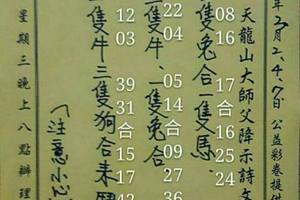 年2月2.4.7日公益彩卷提供
天龍山大師父降示詩文
08 17 25
16 合16 24
隻兔合一隻馬
22 05 09 36
04 14合27
隻牛、一隻兔合
12 39 15 42
03 31合17
隻牛三隻狗合來
(注意小
星期三晚上八點辦理